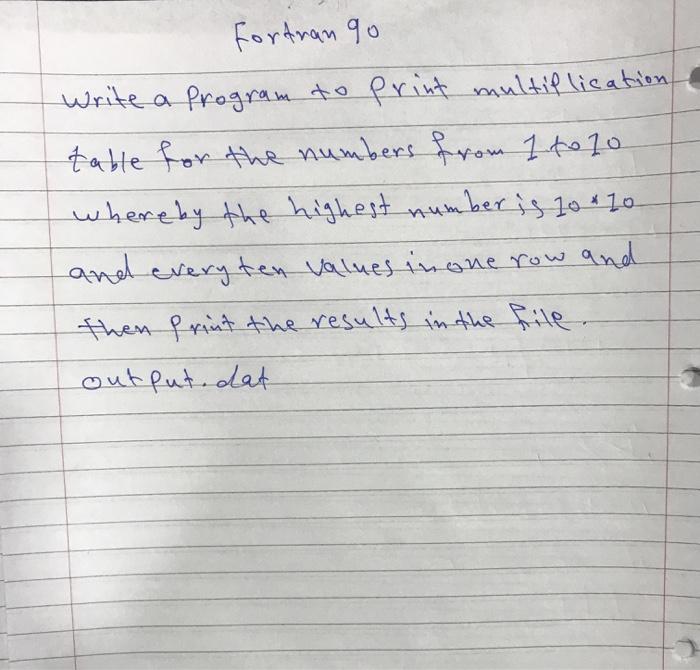 Fortran 90
Write a Program to Print multiplication
table for the numbers from 1 to 10
whereby the highest number is 10 * 10
and every ten values in one row and
then Print the results in the file.
output.dat